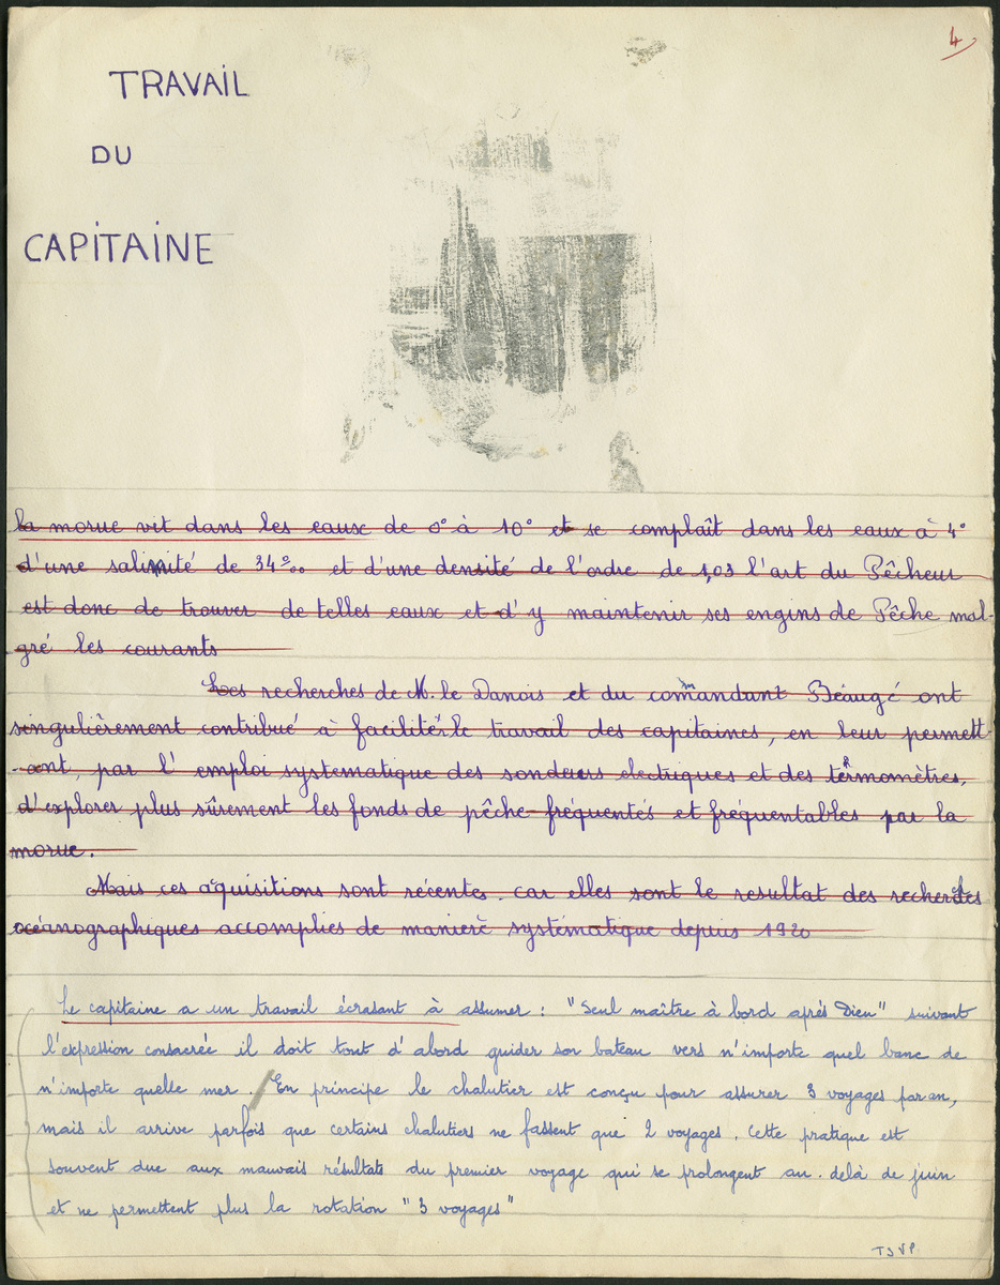 4
TRAVAIL
DU
CAPITAINE
la morue vit dans les eaux de 0° à 10° et se complaît dans les eaux à 4°
d'une salinité de 34‰ et d'une densité de l'ordre de 1,03 l'art du Pêcheur
est donc de trouver de telles eaux et d'y maintenir ses engins de Pêche mal-
gré les courants
Les recherches de M. le Danois et du commandant Béaugé ont
singulièrement contribué à faciliter le travail des capitaines, en leur permett
-ant, par l'emploi systematique des sondeurs electriques et des thermomètres,
d'explorer plus sûrement les fonds de pêche fréquentés et fréquentables par la
morue.
Mais ces aquisitions sont récentes. car elles sont le resultat des recherches
océanographiques accomplies de manière systématique depuis 1920
Le capitaine a un travail écrasant à assumer : "Seul maître à bord après Dieu" suivant
l'expression consacrée il doit tout d'abord guider son bateau vers n'importe quel banc de
n'importe quelle mer. / En principe le chalutier est conçu pour assurer 3 voyages par an,
mais il arrive parfois que certains chalutiers ne fassent que 2 voyages. Cette pratique est
souvent due aux mauvais résultats du premier voyage qui se prolongent au-delà de juin
et ne permettent plus la rotation "3 voyages"
TSVP